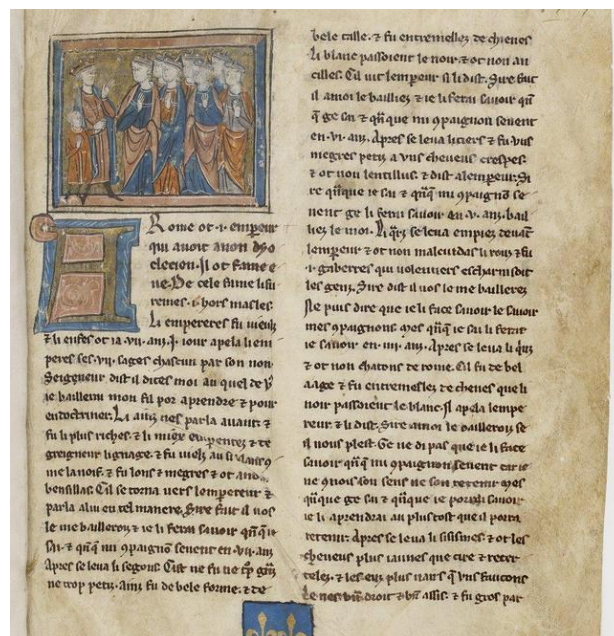 A Rome ot .i. empereur
qui auoit a non dyo
clecien. Il ot fame e
ue. De cele fame li fu
remes .i. hors masles.
Li empereres fu uieulz
⁊ li enfes ot ia .vii. anz. .i. iour apela li em
peres ses .vii. sages chascun par son non
Seigneur dist il dites moi au quel de v̾
ie baillerai mon fil por aprendre ⁊ pour
endoctriner. Li ainz nes parla auant ⁊
fu li plus riches ⁊ li miex enparentez ⁊ de
greigneur lignage ⁊ fu uielz
me la noif. ⁊ fu lons ⁊ megres ⁊ ot a non
bensillas. Cil se torna uers lempereur ⁊
parla a lui en tel maniere. Sire fait il vos
le me bailleroiz ⁊ ie li ferai sauoir qn̄q̄ ie
sai ⁊ qn̄q̄ mi ꝯpaignon seuent en .vii. anz
Apres se leua li segons. Cist ne fu ne
ne trop petiz. Ainz fu de bele forme ⁊ de
bele taille. ⁊ fu entremellez de chienes
li blanc passoient le noir ⁊ ot non an
cilles. Cil uit lempereur si li dist. Sire fait
il a moi le bailliez ⁊ ie li ferai sauoir qn̄
q̄ ge sai ⁊ qn̄que mi ꝯpaignon seuent
en .vi. anz. Apres se leua li tiers ⁊ fu vns
megres petiz a vns cheueus crespes
⁊ ot non lentillus ⁊ dist a lempereur. Si
re qn̄que ie sai ⁊ qn̄q̄ mi ꝯpaignon se
uent ge li ferai sauoir en .v. anz. bail
liez le moi. Li qr̄z se leua en piez deuāt
lempereur ⁊ ot non malcuidas li rous ⁊ fu
.i. gaberres qui volentiers escharnissoit
les genz. Sire dist il vos le me bailleroiz
Ne puis dire que ie li face sauoir le sauoir
mes ꝯpaignons. Mes qn̄q̄ ie sai li ferai
ie sauoir en .iiii. anz. Apres se leua li qīz
⁊ ot non chatons de rome. Cil fu de bel
aage ⁊ fu entremeslez de chenes que li
noir passoient le blanc. Il apela lempe
reur. ⁊ li dist. Sire a moi le bailleroiz se
il nous plest. Ge ne di pas que ie li face
sauoir qn̄q̄ mi ꝯpaignon seuent car ie
ne son retenir mes
qn̄que ge sai ⁊ qn̄que ie porrai sauoir
ie li aprendrai au plus tost que il porra
retenir. Apres se leua li sisimes ⁊ ot les
cheueus plus iaunes que cire ⁊ recer
celez. ⁊ les eux plus uairs q̄ vns faucons
Le nes bn̄ droit ⁊ bn̄ assis. ⁊ fu gros par